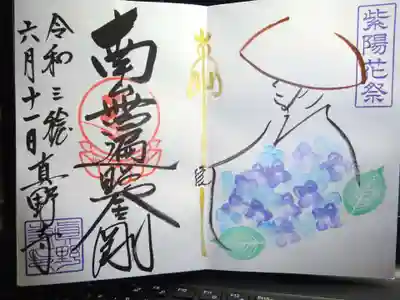 紫陽花祭
南無遍照金剛
令和三稔
六月十一日真野寺